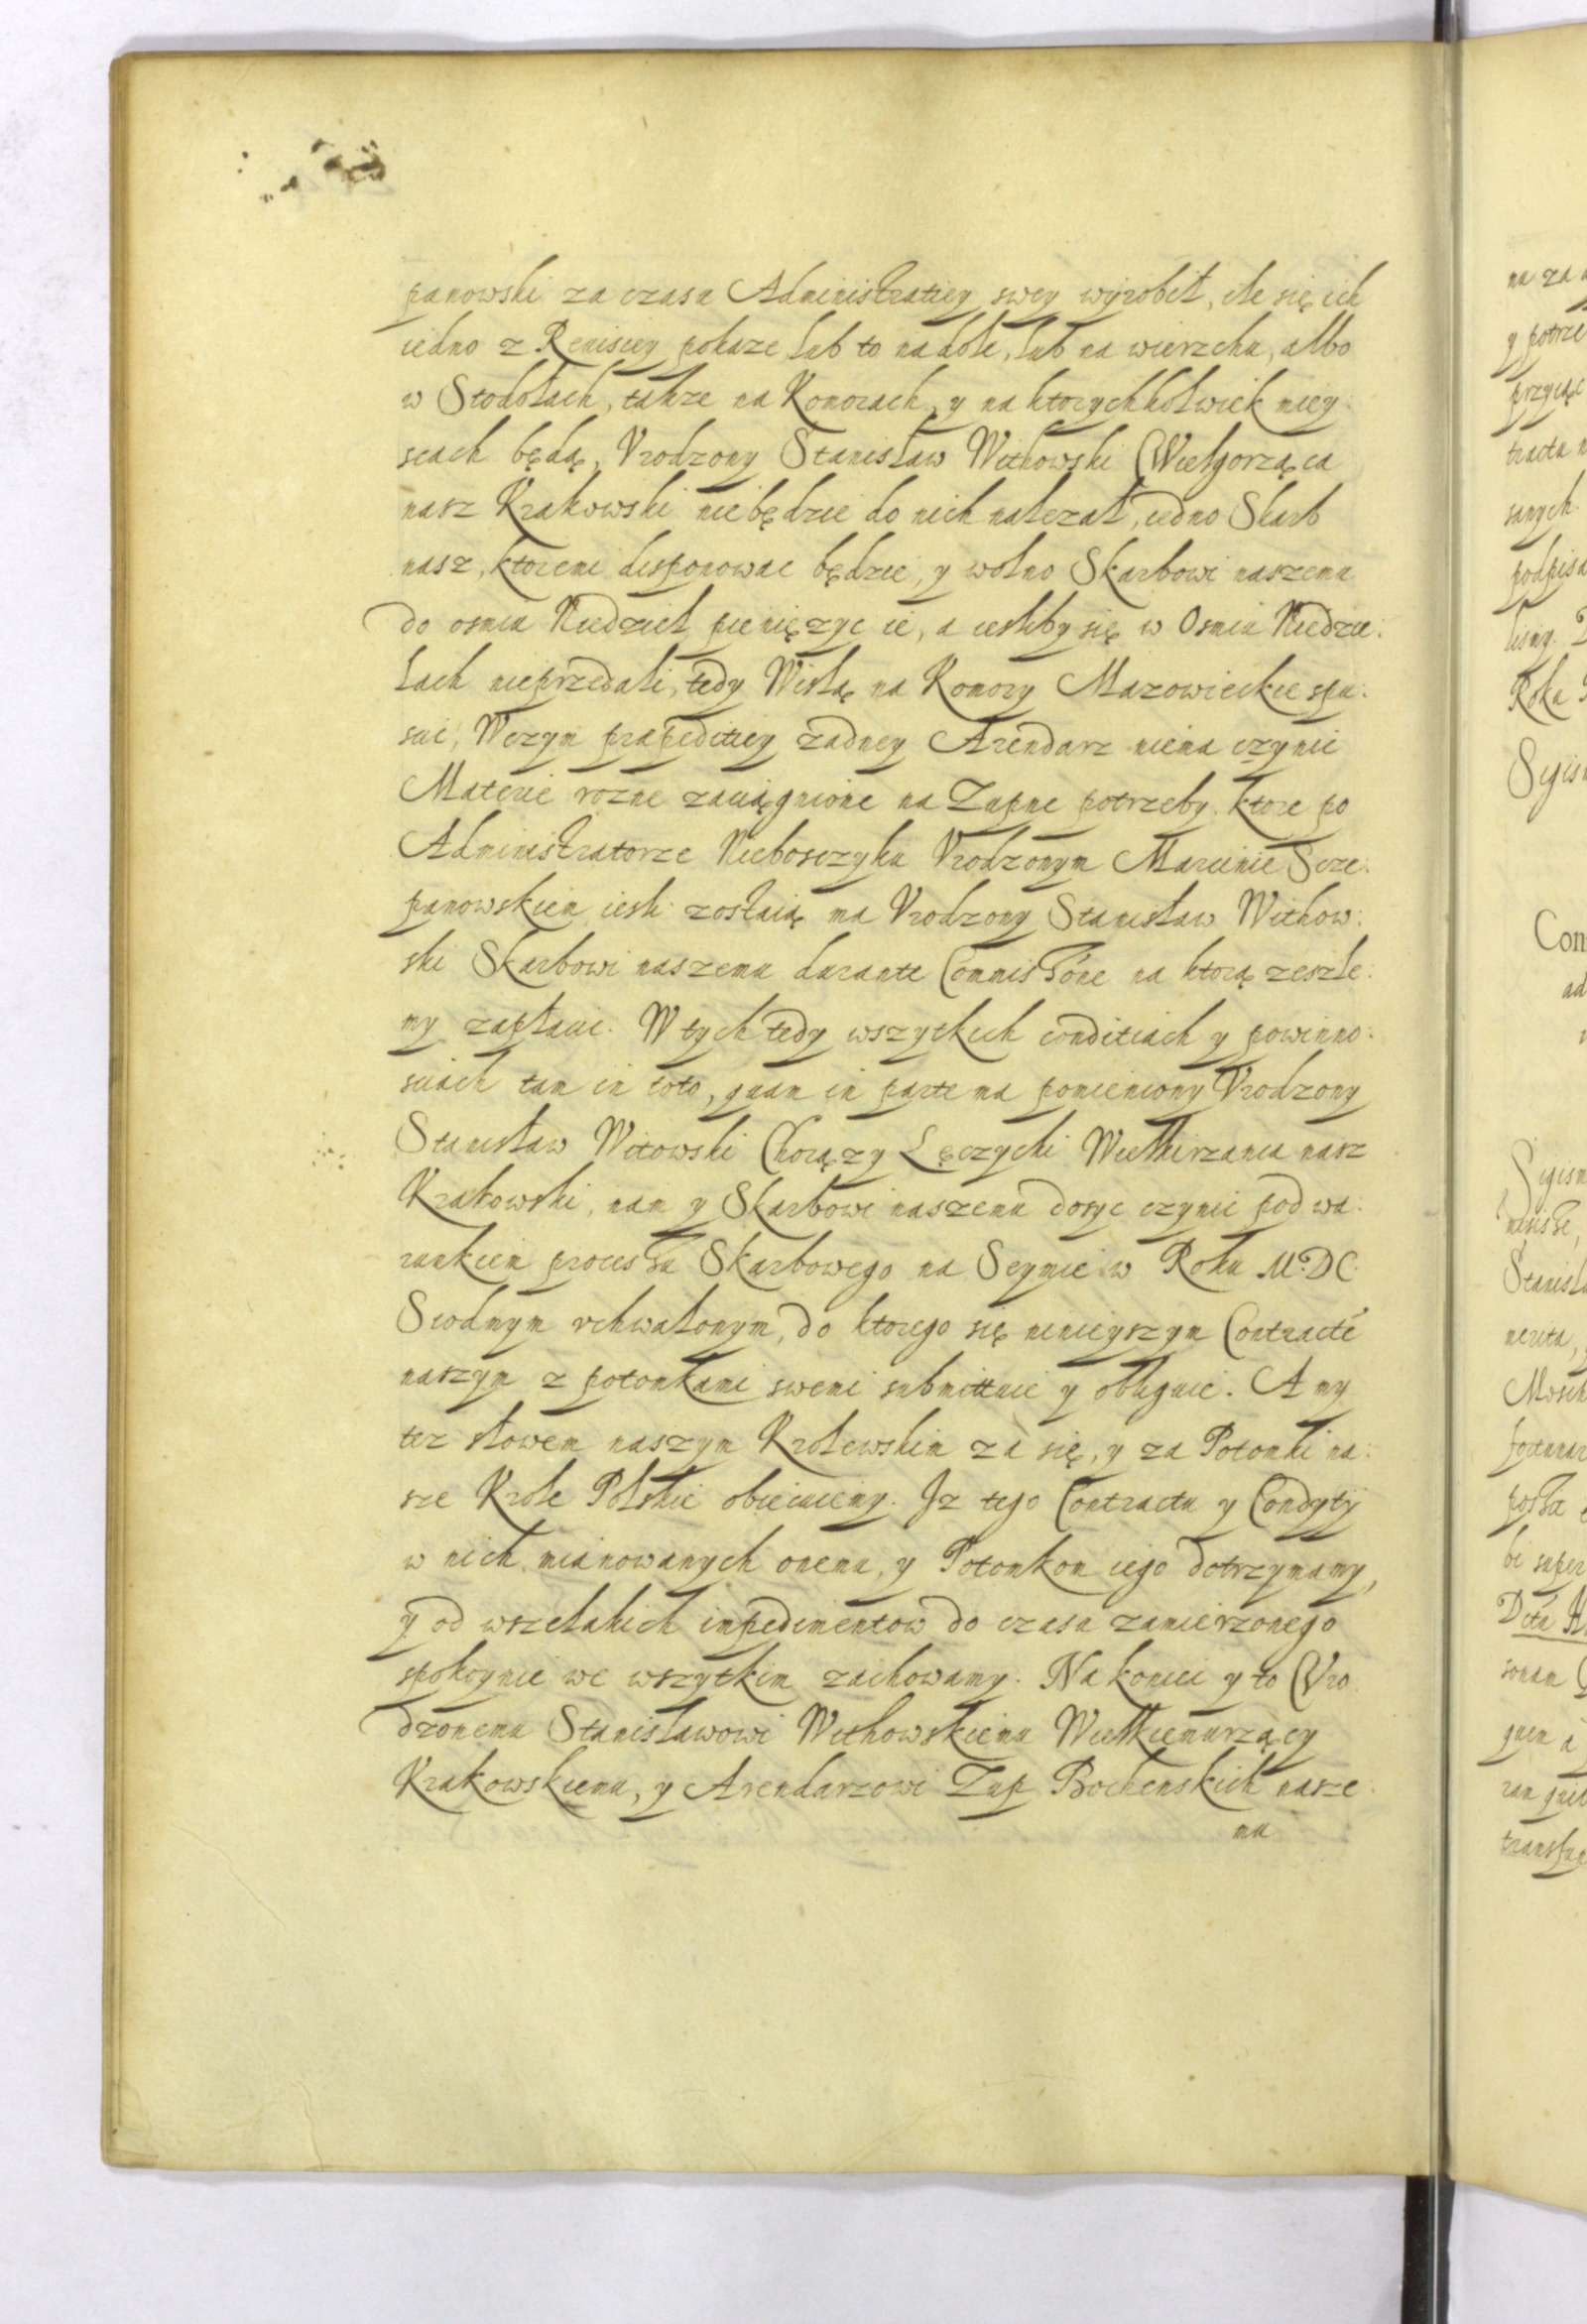 panowski za czasu Administratiey swey wyrobił, ile się ich
iedno z Remisiey pokaze, lub to na dole, lub na wierzchu, albo
w Stodołach, takze na Komorach, y na ktorychkolwiek miey:
scach będą, Vrodzony Stanisław Withowski Wielgorządca
nasz Krakowski niebędzie do nich nalezał, iedno Skarb
nasz, ktoremi disponowac będzie, y wolno Skarbowi naszemu
do osmiu Niedziel pieniężyc ie, a iesliby się w Osmiu Niedzie:
lach nieprzedali, tedy Wisłą na Komory Mazowieckie spu:
scic, Wczym praepeditiey zadney Arendarz niema czynic
Materie rozne zaciągnione na Zupne potrzeby. ktore po
Administratorze Nieboszczyku Vrodzonym Marcinie Scze:
panowskim iesli zostaią ma Vrodzony Stanisław Withow:
ski Skarbowi naszemu durante Commissione na ktorą zeszle:
my zapłacic. W tych tedy wszytkich conditiach y powinno:
sciach tam in toto, quam in parte ma pomieniony Vrodzony
Stanisław Witowski Chorązy Łęczycki Wielkirzanca nasz
Krakowski, nam y Skarbowi naszemu dosyc czynic pod wa:
runkiem processu Skarbowego na Seymie w Roku M.DC.
Siodmym vchwalonym, do ktorego się ninieyszym Contractem
naszym z potomkami swemi submittuie y obliguie. A my
tez słowem naszym Krolewskim za się, y za Potomki na:
sze Krole Polskie obiecuiemy. Iz tego Contractu y Condytij
w nich mianowanych onemu, y Potomkom iego dotrzymamy,
y od wszelakich impedimentow do czasu zamierzonego
spokoynie we wszytkim zachowamy. Na koniec y to Vro
dzonemu Stanisławowi Withowskiemu Wielkiemurządcy
Krakowskiemu, y Arendarzowi Zup Bochenskich nasze:
mu